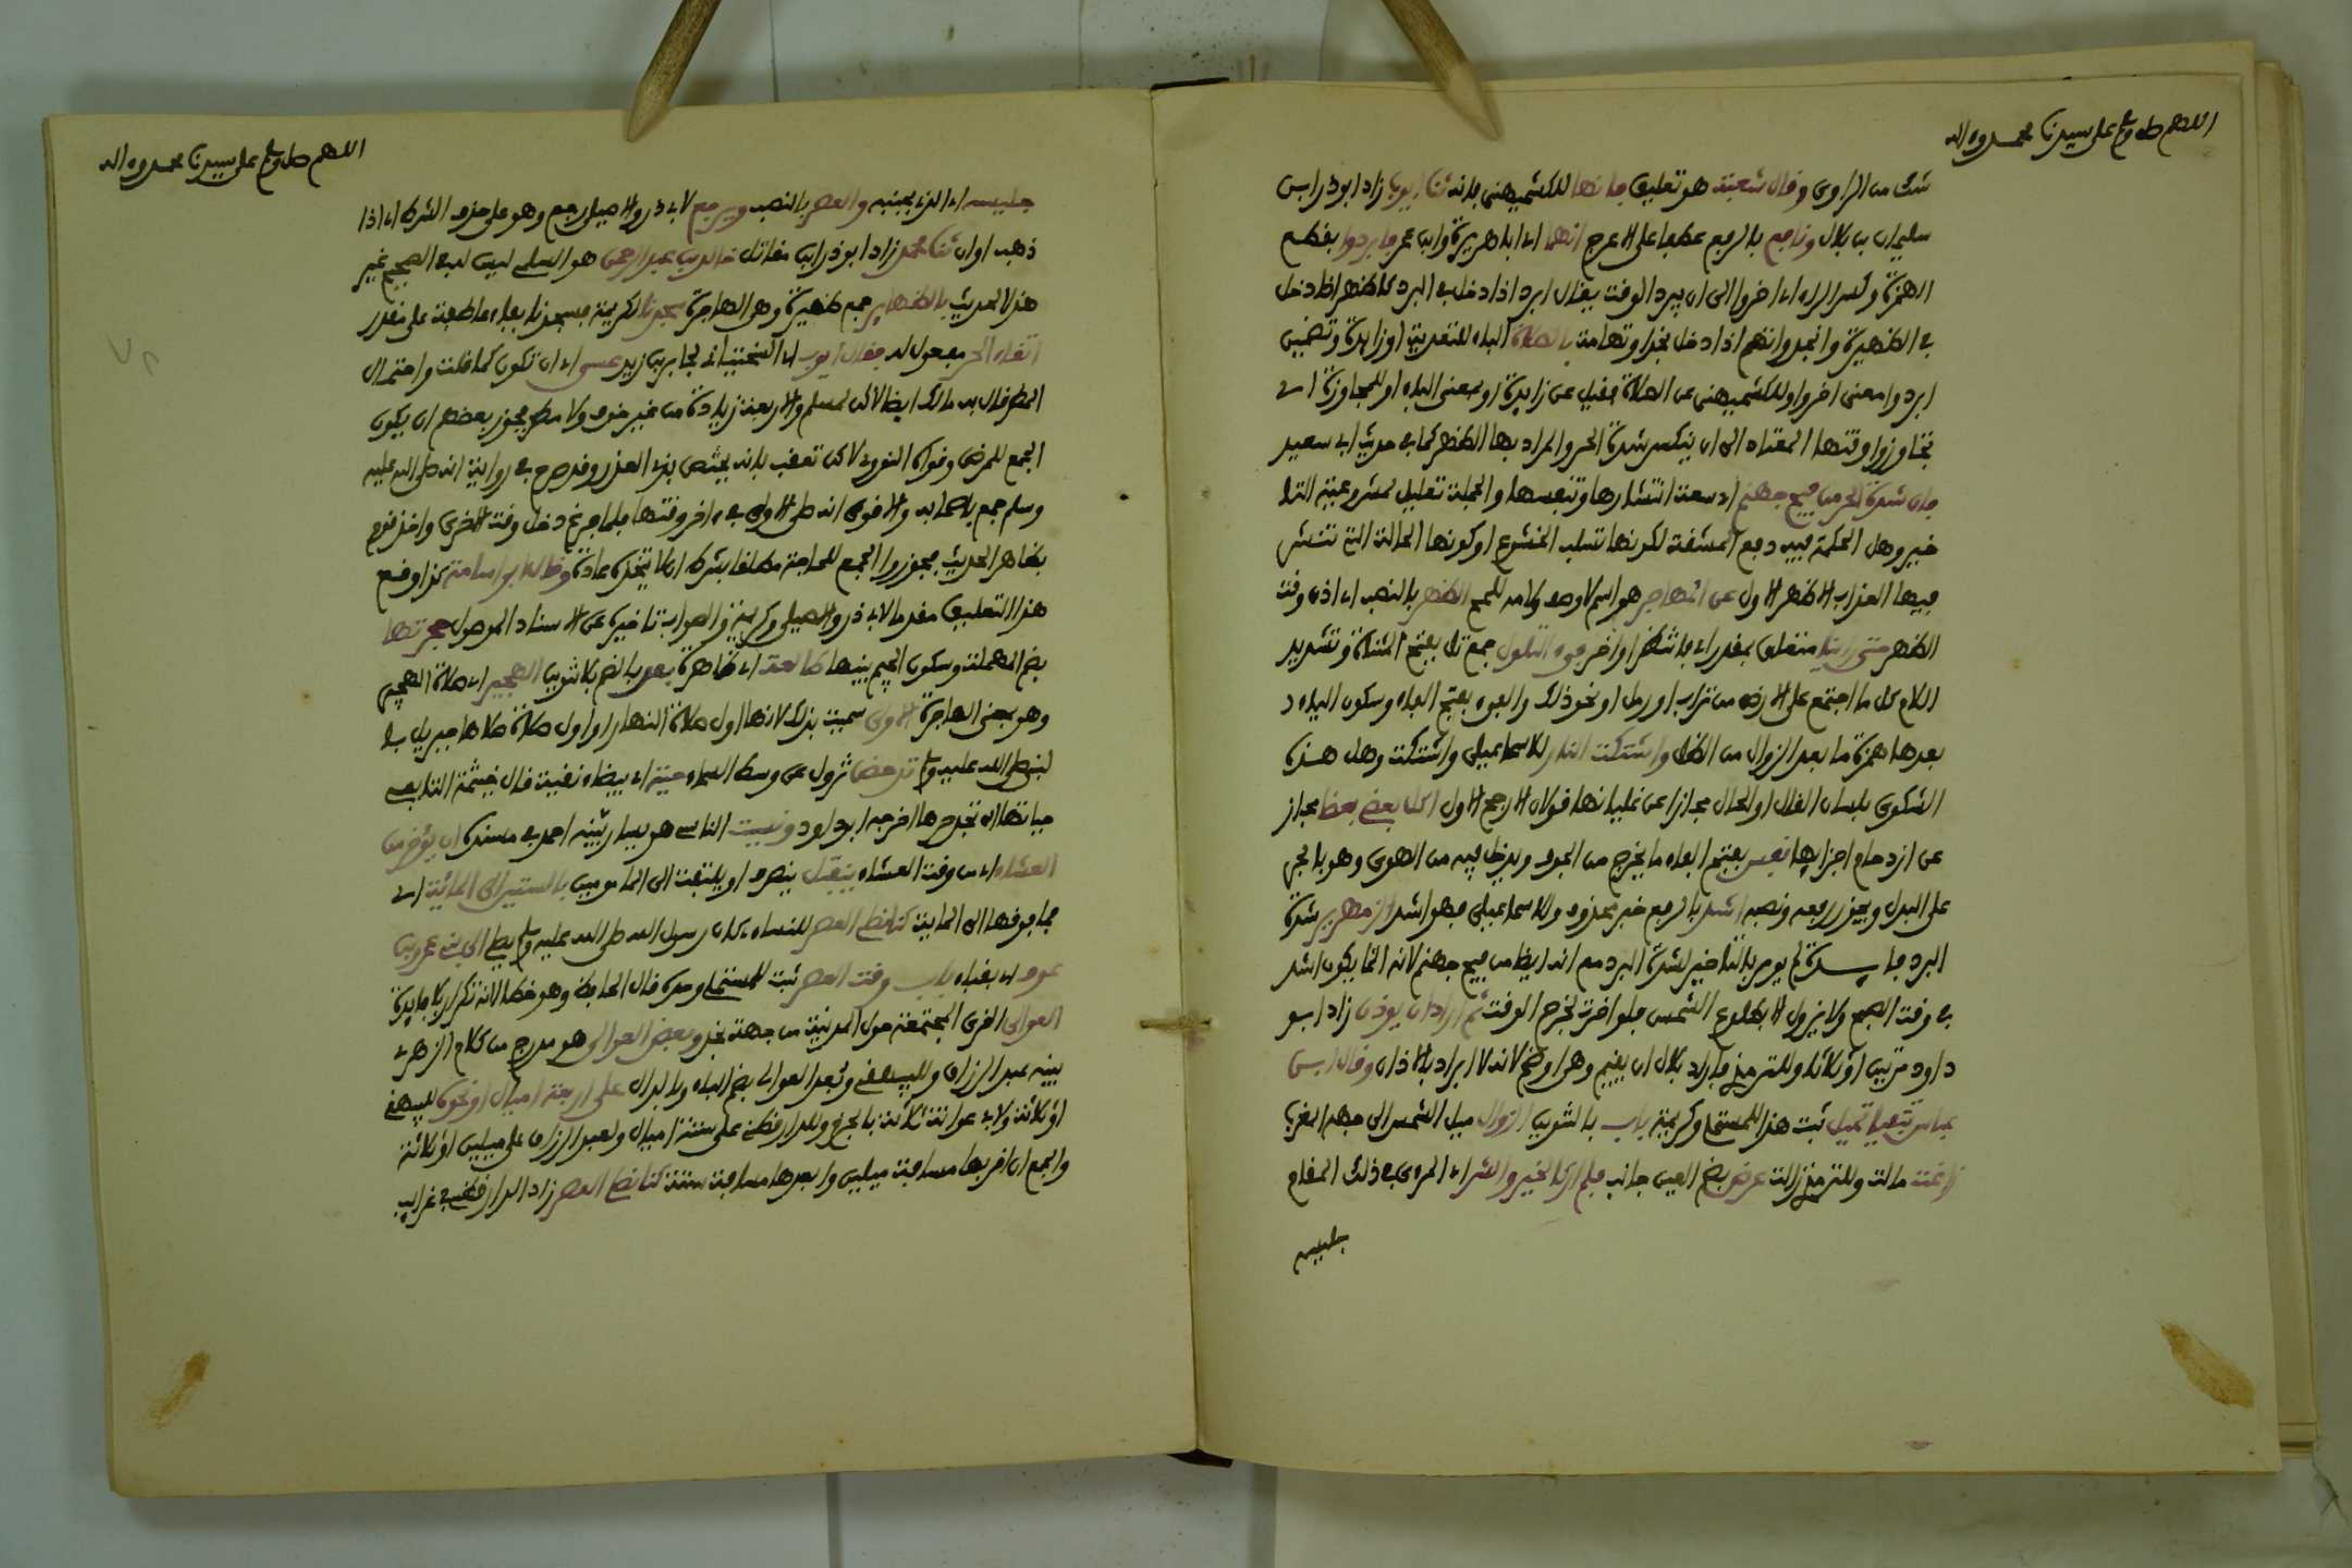 اللهم صل وسلم على سيدنا محمد وءاله
شك من الراوي وقال شعبة هو تعليق فانها للكشميهني فإنه ثنا أيوب زاد ابو ذر ابن
سليمان بن بلال ونافع بالرفع عطفا على الاعرج انهما اي ابا هريرة وابن عمر فابردوا بقطع
الهمزة وكسر الراء اي اخروا الى ان يبرد الوقت يقال ابرد اذا دخل في البرد كاظهر اذا دخل
في الظهيرة وانجد واتهم اذا دخل نجدا وتهامة بالصلاة الباء للتعدية او زايدة وتضمين
ابردوا معنى اخروا وللكشميهني عن الصلاة فقيل عن زايدة او بمعنى الباء او للمجاوزة اي
تجاوزوا وقتها المعتاد الى ان ينكسر شدة الحر والمراد بها الظهر كما في حديث ابي سعيد
فان شدة الحر من فيح جهنم اي سعة انتشارها وتنفسها والجملة تعليل لمشروعية التا
خير وهل الحكمة فيه دفع المشقة لكونها تسلب الخشوع او كونها الحالة التي تنتشر
فيها العذاب الاظهر الاول عن المهاجر هو اسم لا وصف ولامه للمح الظهر بالنصب اي اذن وقت
الظهر حتى راينا متعلق بمقدر اي فانتظر او اخر فيء التلول جمع تل بفتح المثناة وتشديد
اللام كل ما اجتمع على الارض من تراب او رمل او نحو ذلك والفيء بفتح الفاء وسكون الياء
بعدها همزة ما بعد الزوال من الظل واشتكت النار للاسماعيلي واشتكت وهل هذه
الشكوى بلسان القال او الحال مجازا عن غليانها قولان الارجح الاول اكل بعضي بعضا مجاز
عن ازدحام اجزايها نفس بفتح الفاء ما يخرج من الجوف ويدخل فيه من الهوى وهو بالجر
على البدل ويجوز رفعه ونصبه اشد بالرفع خبر محذوف وللاسماعيلي فهو اشد الزمهرير شدة
البرد فايـــدة لم يومر بالتاخير لشدة البرد مع انه ايضا من فيح جهنم لانه انما يكون اشد
في وقت الصبح ولا يزول الا بطلوع الشمس فلو اخرت لخرج الوقت ثم اراد ان يوذن زاد ابو
داود مرتين او ثلاثا وللترمذي فاراد بلال ان يقيم وهو اوضح لانه لا ابراد بالاذان وقال ابن
عباس تتفيأ تميل ثبت هذا للمستملي وكريمة باب بالتنوين الزوال ميل الشمس الى جهة المغرب
زاغت مالت وللترمذي زالت عرض بضم العين جانب فلم ار كالخير والشر اي المرءي في ذلك المقام
جليسه
اللهم صل وسلم على سيدنا محمد وءاله
جليسه اي الذي بجنبه والعصر بالنصب ويرجع لابي ذر والاصيلي رجع وهو على حذف الشرط اي اذا
ذهب او ان ثنا محمد زاد ابو ذر ابن مقاتل خالد بن عبد الرحمن هو السلمي ليس له في الصحيح غير
هذا الحديث بالظهاير جمع ظهيرة وهي الهاجرة سجدنا لكريمة فسجدنا بفاء عاطفة على مقدر
اتقاء الحر مفعول له فقال ايوب اي السختياني لجابر بن زيد عسى اي ان تكون كما قلت واحتمال
المطر قال به مالك ايضا لاكن لمسلم والاربعة زيادة من غير خوف ولا مطر فجوز بعضهم ان يكون
الجمع للمرض وقواه النووي لاكن تعقب بانه يختص بذي العذر وقد صرح في رواية انه صلى الله عليه
وسلم جمع باصحابه والاقوى انه صلى الاولى في ءاخر وقتها فلما فرغ دخل وقت الاخرى واخذ قوم
بظاهر الحديث فجوزوا الجمع للحاجة مطلقا بشرط ان لا يتخذ عادة وقال ابو اسامة كذا وقع
هذا التعليق مقدما لابي ذر والاصيلي وكريمة والصواب تاخيره عن الاسناد الموصول حجرتها
بضم المهملة وسكون الجيم بيتها طالعة اي ظاهرة بعد بالضم بلا تنوين الهجير اي صلاة الهجير
وهو بمعنى الهاجرة الاولى سميت بذلك لانها اول صلاة النهار او اول صلاة صلاها جبريل با
لنبي صلى الله عليه وسلم تدحض تزول عن وسط السماء حية اي بيضاء نقية قال خيثمة التابعي
حياتها ان تجد حرها اخرجه ابو داود ونسيت الناسي هو سيار بينه احمد في مسنده ان يؤخر من
العشاء اي من وقت العشاء ينفتل ينصرف او يلتفت الى المامومين بالستين الى المائة اي
فما فوقها الى الماية كنا نصلي العصر للنساء كان رسول الله صلى الله عليه وسلم يصلي الى بني عمرو بن
عوف اي بقباء باب وقت العصر ثبت للمستملي وحده قال الحافظ وهو خطا لانه تكرار بلا فايدة
العوالي القرى المجتمعة حول المدينة من جهة نجد وبعض العوالي هو مدرج من كلام الزهري
بينه عبد الرزاق وللبيهقي وبعد العوالي بضم الباء وبالدال على اربعة اميال او نحوه للبيهقي
او ثلاثة ولابي عوانة ثلاثة بالجزم وللدارقطني على ستة اميال ولعبد الرزاق على ميلين او ثلاثة
والجمع ان اقربها مسافة ميلين وابعدها مسافة ستة كنا نصلي العصر زاد الدارقطني في غرايب